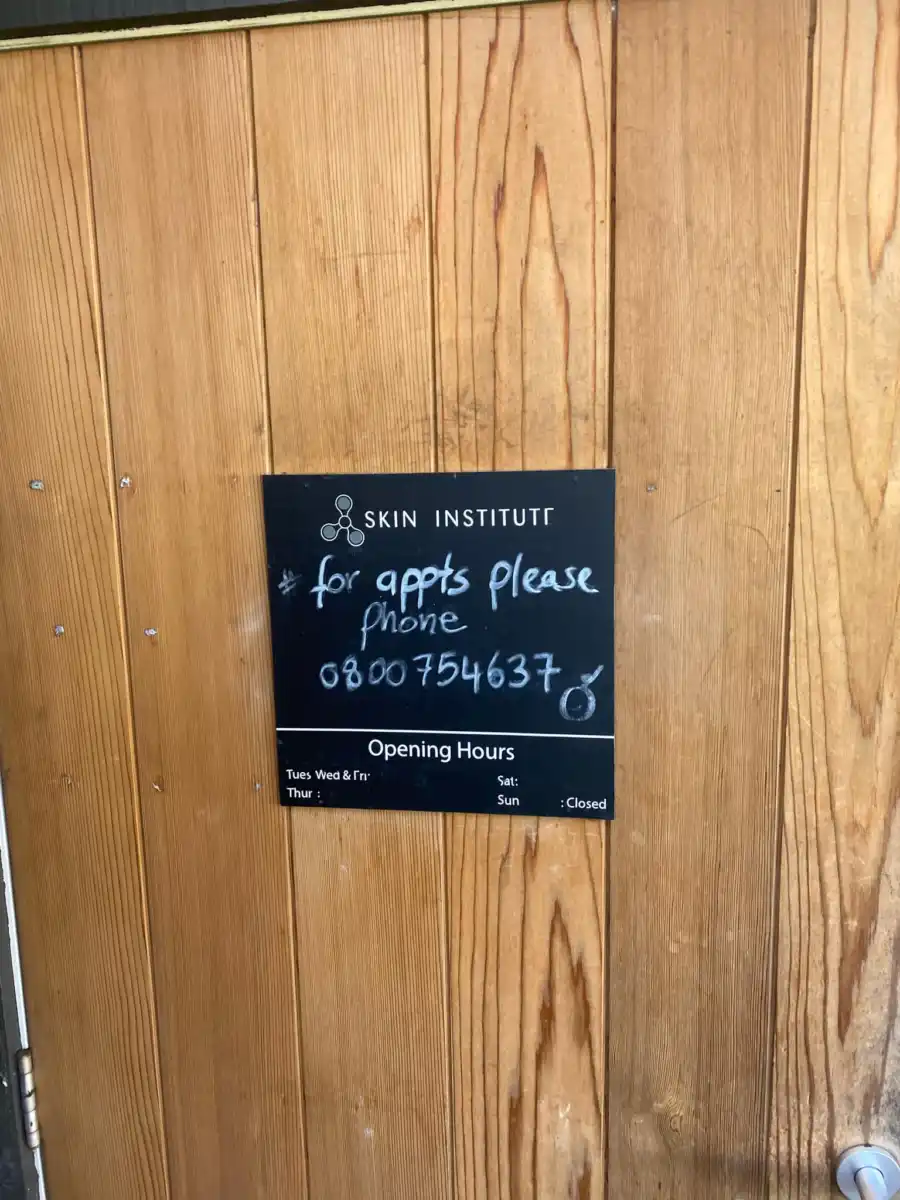 SKIN INSTITUTE
* for appts please
phone
0800 754637
Opening Hours
Tues Wed & Fri:
Thur :
Sat:
Sun : Closed